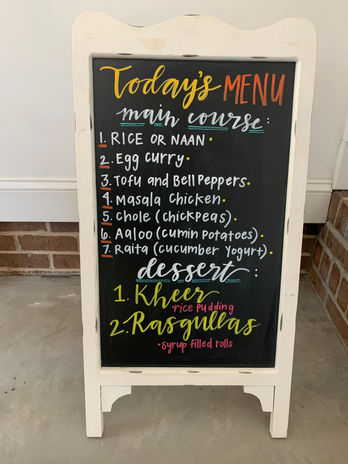 Today's MENU
main course:
1. RICE OR NAAN •
2. Egg curry •
3. Tofu and Bell Peppers •
4. Masala Chicken •
5. Chole (chickpeas) •
6. Aaloo (cumin potatoes) •
7. Raita (cucumber Yogurt) •
dessert:
1. Kheer
rice pudding
2. Rasgullas
• syrup filled rolls